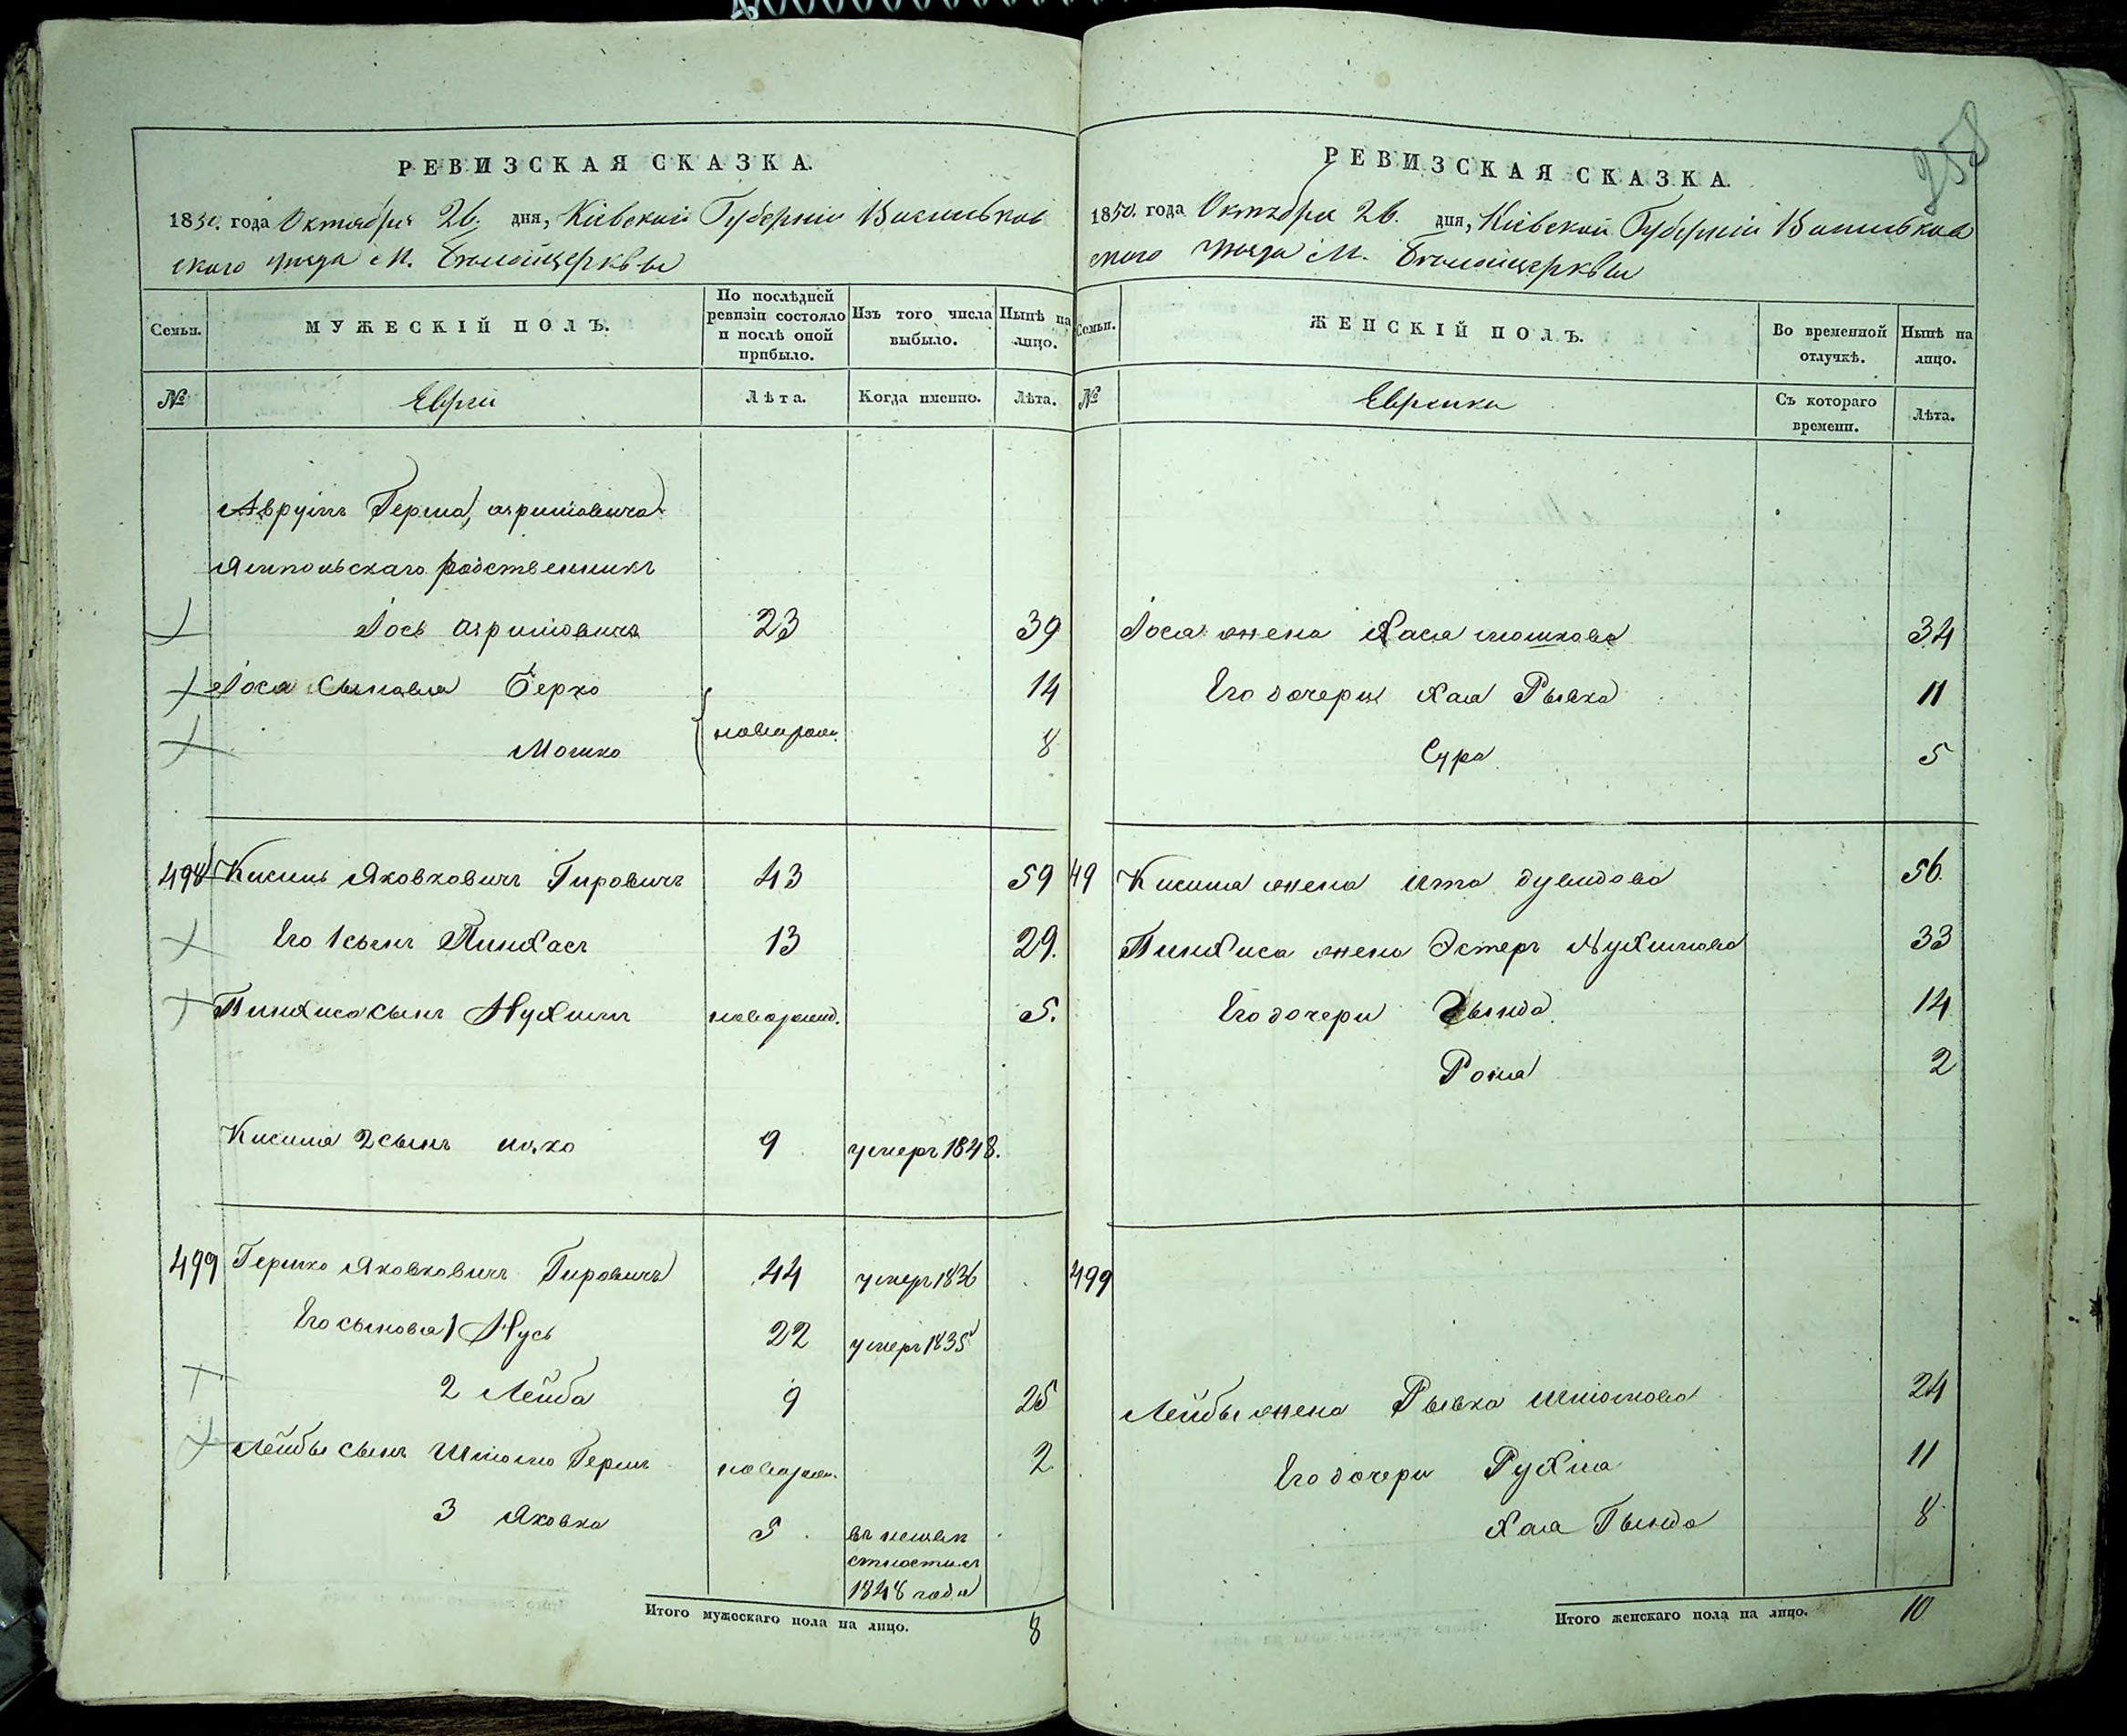 РЕВИЗСКАЯ СКАЗКА.
1850. года Октября 26. дня, Кіевской Губерніи Васильков
скаго уѣзда М. Бѣлойцеркви
Семьи.
МУЖЕСКІЙ ПОЛЪ.
По послѣдней ревизіи состояло и послѣ оной прибыло.
Изъ того числа выбыло.
Нынѣ на лицо.
№
Евреи
Лѣта.
Когда именно.
Лѣта.
Аврумъ Герша,
Ямпольскаго родственникъ
Іось 23 39
Іося сыновья Берко 14
новорожд.
Мошко 8
498 Кисиль Яковковичъ Гировичъ 43 59
Его 1 сынъ Пинхасъ 13 29.
Пинхиса сынъ Нухимъ новорожд. 5.
Кисиля 2 сынъ 9 умеръ 1848.
499 Гершко Яковковичъ Гировичъ 44 умеръ 1836
Его сыновья 1 Нусь 22 умеръ 1835
2 Лейба 9 25
Лейбы сынъ Шлиомо Гершъ новорожд. 2
3 Яковка 5 въ неизвѣ
стности съ
1848 года
Итого мужескаго пола на лицо. 8
РЕВИЗСКАЯ СКАЗКА.
1850. года Октября 26. дня, Кіевской Губерніи Васильков
скаго уѣзда М. Бѣлойцеркви
Семьи.
ЖЕНСКІЙ ПОЛЪ.
Во временной отлучкѣ.
Нынѣ на лицо.
№
Еврейки
Съ котораго времени.
Лѣта.
Іося жена Хася Мошкова 34
Его дочери Хая Рывка 11
Сура 5
49 Кисиля жена Ита Дувидова 56
Пинхиса жена Эстеръ Нухимова 33
Его дочери Гнында 14
2
499
Лейбы жена Рывка Шлиомова 24
Его дочери Рухля 11
Хая Гында 8
Итого женскаго пола на лицо. 10